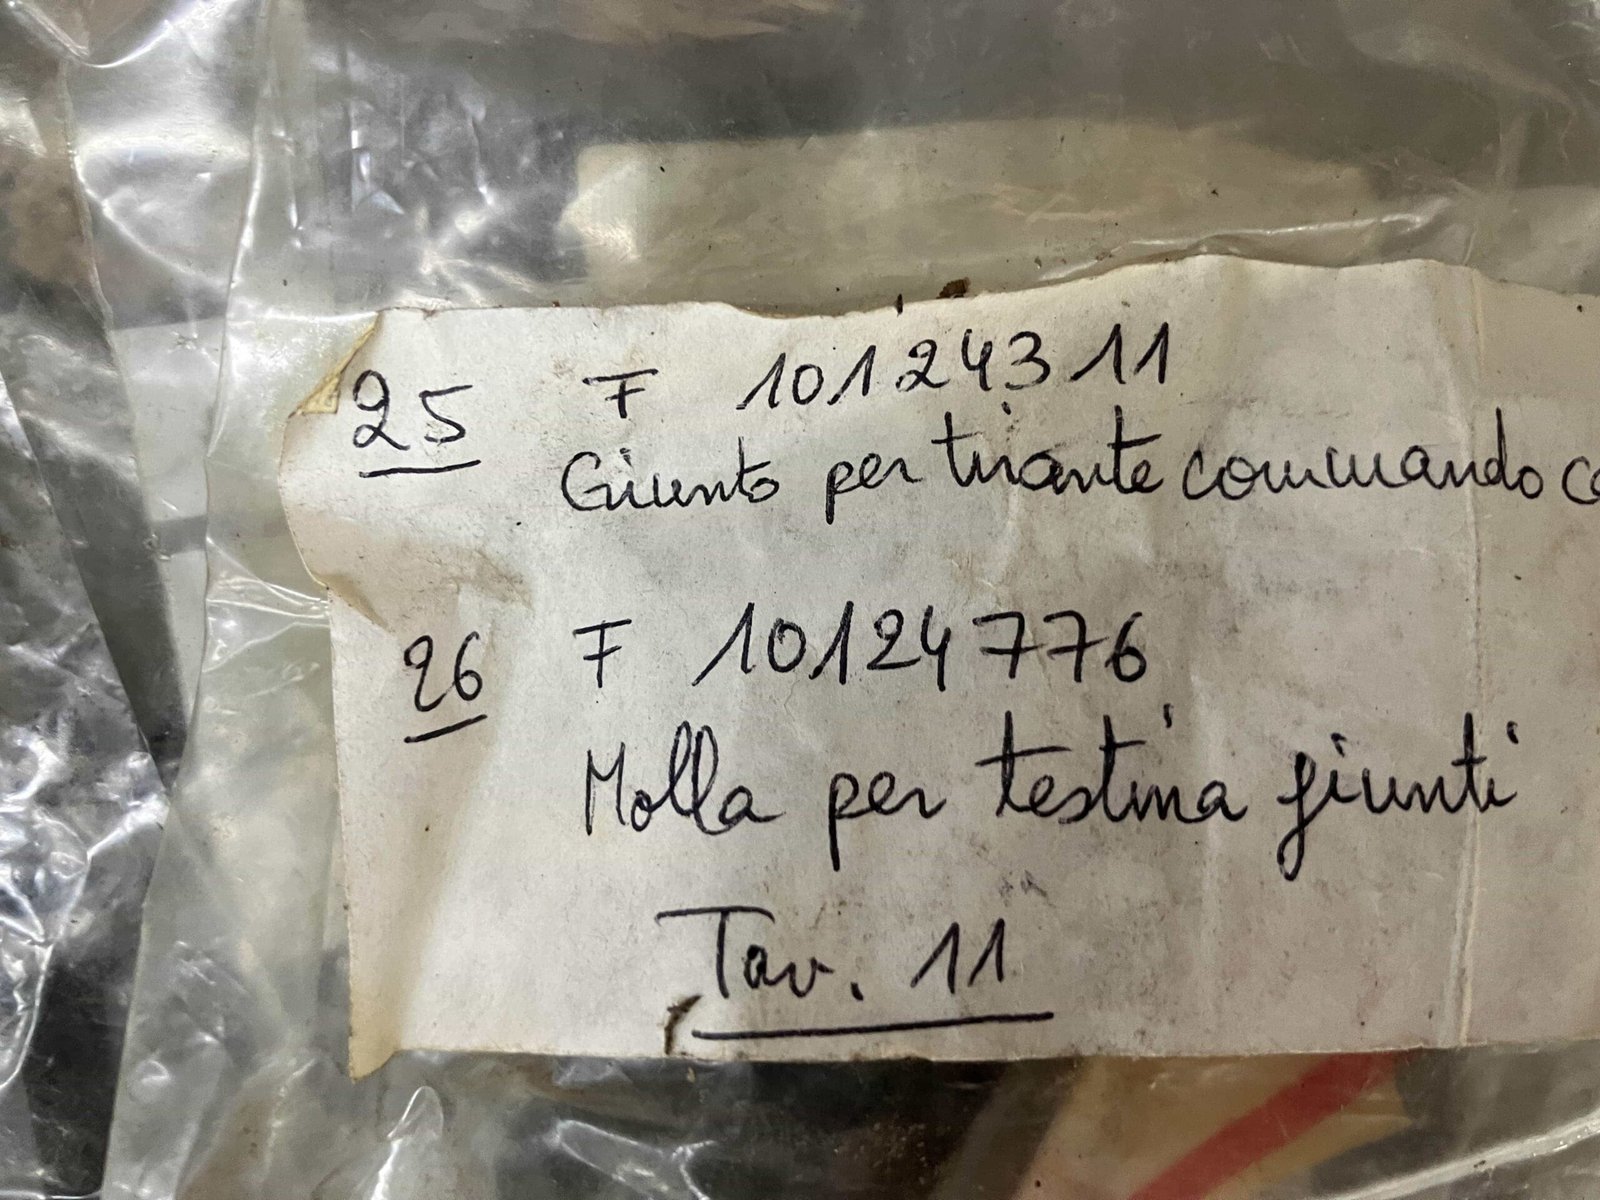 25 F 10124311
Giunto per tirante commando
26 F 10124776
Molla per testina giunti
Tav. 11